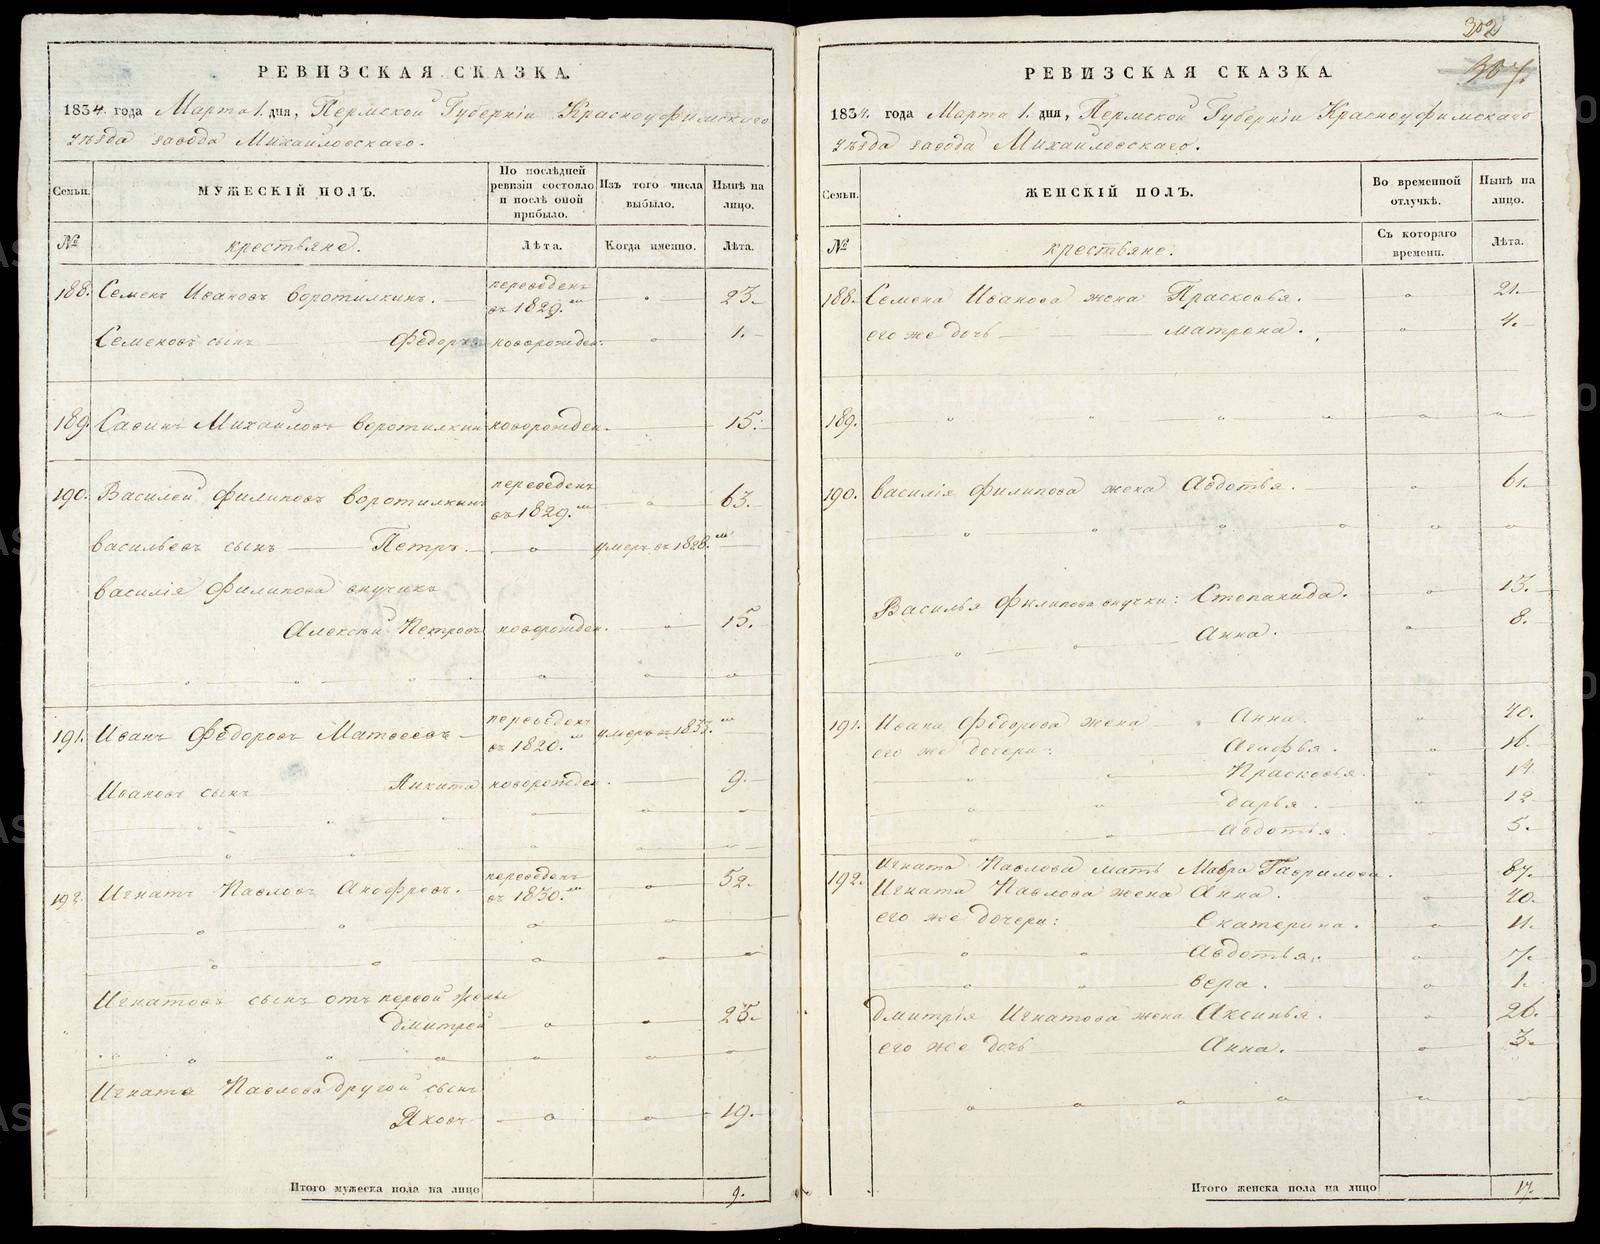 302
307.
РЕВИЗСКАЯ СКАЗКА.
1834. года Марта 1. дня, Пермской Губерніи Красноуфимскаго
уѣзда завода Михайловскаго.
Семьи.
МУЖЕСКІЙ ПОЛЪ.
По послѣдней ревизіи состояло и послѣ оной прибыло.
Изъ того числа выбыло.
Нынѣ на лицо.
№
крестьяне.
Лѣта.
Когда именно.
Лѣта.
188. Семенъ Ивановъ Воротилкинъ. переведенъ въ 1829.мъ 23.
Семеновъ сынъ Федоръ новорожден. 1.
189. Савинъ Михайловъ Воротилкин новорожден. 15.
190. Василей Филиповъ Воротилкинъ переведенъ въ 1829.мъ 63.
Васильевъ сынъ Петръ. умеръ въ 1828.мъ
Василія Филипова внучикъ
Алексѣй Петровъ новорожден. 15.
191. Иванъ Федоровъ Матвеевъ переведенъ въ 1820.мъ умеръ въ 1833.мъ
Ивановъ сынъ Никита новорожден. 9.
192. Игнатъ Павловъ Анофревъ. переведенъ въ 1830.мъ 52.
Игнатовъ сынъ отъ первой жены
Дмитрей 25.
Игната Павлова другой сынъ
Яковъ 19.
Итого мужеска пола на лицо 9.
РЕВИЗСКАЯ СКАЗКА.
1834. года Марта 1. дня, Пермской Губерніи Красноуфимскаго
уѣзда завода Михайловскаго.
Семьи.
ЖЕНСКІЙ ПОЛЪ.
Во временной отлучкѣ.
Нынѣ на лицо.
№
крестьяне.
Съ котораго времени.
Лѣта.
188. Семена Иванова жена Прасковья. 21.
его же дочь Матрена. 4.
189.
190. Василія Филипова жена Авдотья. 61.
Василья Филипова внучки: Степанида. 13.
Анна. 8.
191. Ивана Федорова жена Анна. 40.
его же дочери: Агафья. 16.
Прасковья. 14
Дарья. 12
Авдотья. 5.
192. Игната Павлова мать Мавра Гаврилова. 87.
Игната Павлова жена Анна. 40.
его же дочери: Екатерина. 11.
Авдотья. 7.
Вера. 1.
Дмитрія Игнатова жена Аксинья. 26.
его же дочь Анна. 3.
Итого женска пола на лицо 17.